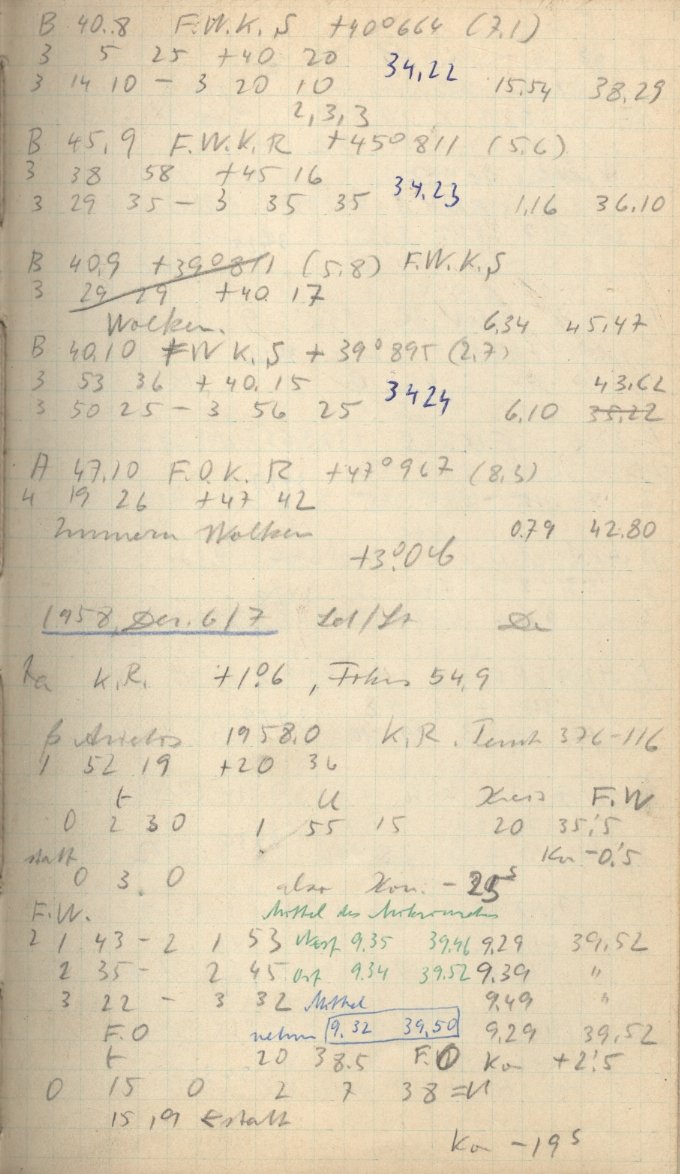 B 40.8 F.W.K.S +40°664 (7,1)
3 5 25 +40 20
34,22
3 14 10 - 3 20 10 15,54 38,29
2,3,3
B 45,9 F.W.K.R +45°811 (5.6)
3 38 58 +45 16
34,23
3 29 35 - 3 35 35 1,16 36,10
B 40,9 +39°811 (5,8) F.W.K.S
3 29 29 +40 17
Wolken. 6,34 45,47
B 40.10 F W K.S +39°895 (2,7)
3 53 36 +40.15 43,62
3424
3 50 25 - 3 56 25 6,10 35,22
A 47,10 F.O.K.R +47°967 (8,3)
4 19 26 +47 42
Wolken 0,79 42,80
+3°,0
1958, Dez. 6/7
K.R. +1°,6, Fokus 54,9
β Arietis 1958,0 K.R. 376-116
1 52 19 +20 36
t U Kreis F.W
0 2 30 1 55 15 20 35,'5
statt Kor -0,'5
0 3. 0 also Kor. -25 s
F.W. Mittel des Mikrometers
2 1 43 - 2 1 53 West 9,35 39,46 9,29 39,52
2 35 - 2 45 Ost 9.34 39,52 9,39 "
3 22 - 3 32 Mittel 9,49 "
F.O nehme 9,32 39,50 9,29 39,52
t 20 38.5 F.O Kor +2,'5
0 15 0 2 7 38 = U
15,19 ← statt
Kor -19 s